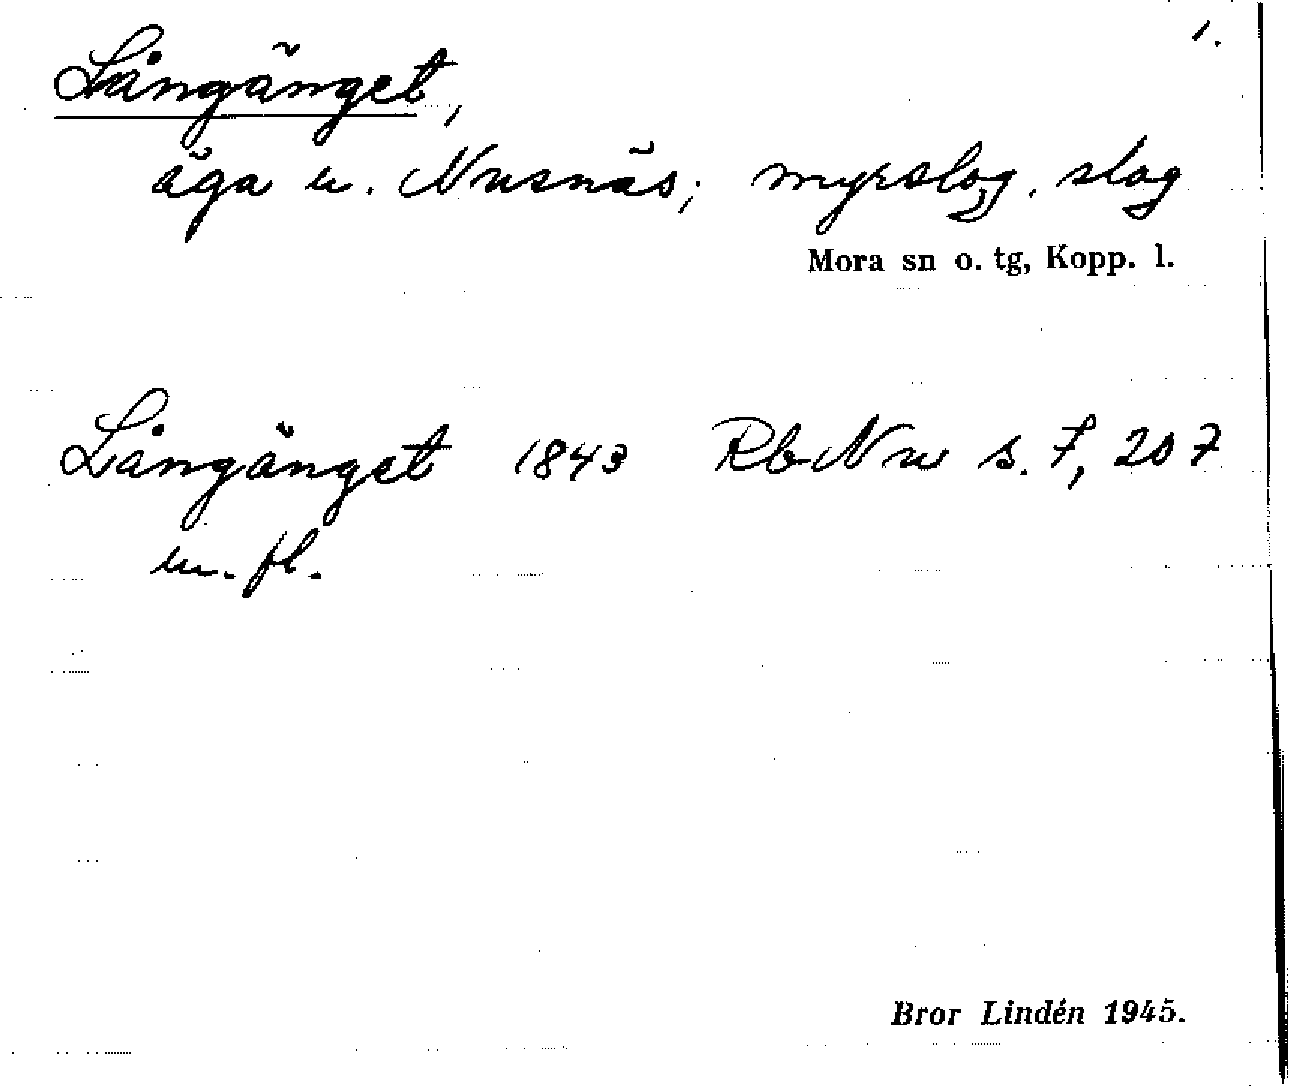 1.
Långänget,
äga u. Nusnäs; myrslog, slog
Mora sn o. tg, Kopp. l.
Långänget 1843 Rb Nu s. 7, 207
m. fl.
Bror Lindén 1945.